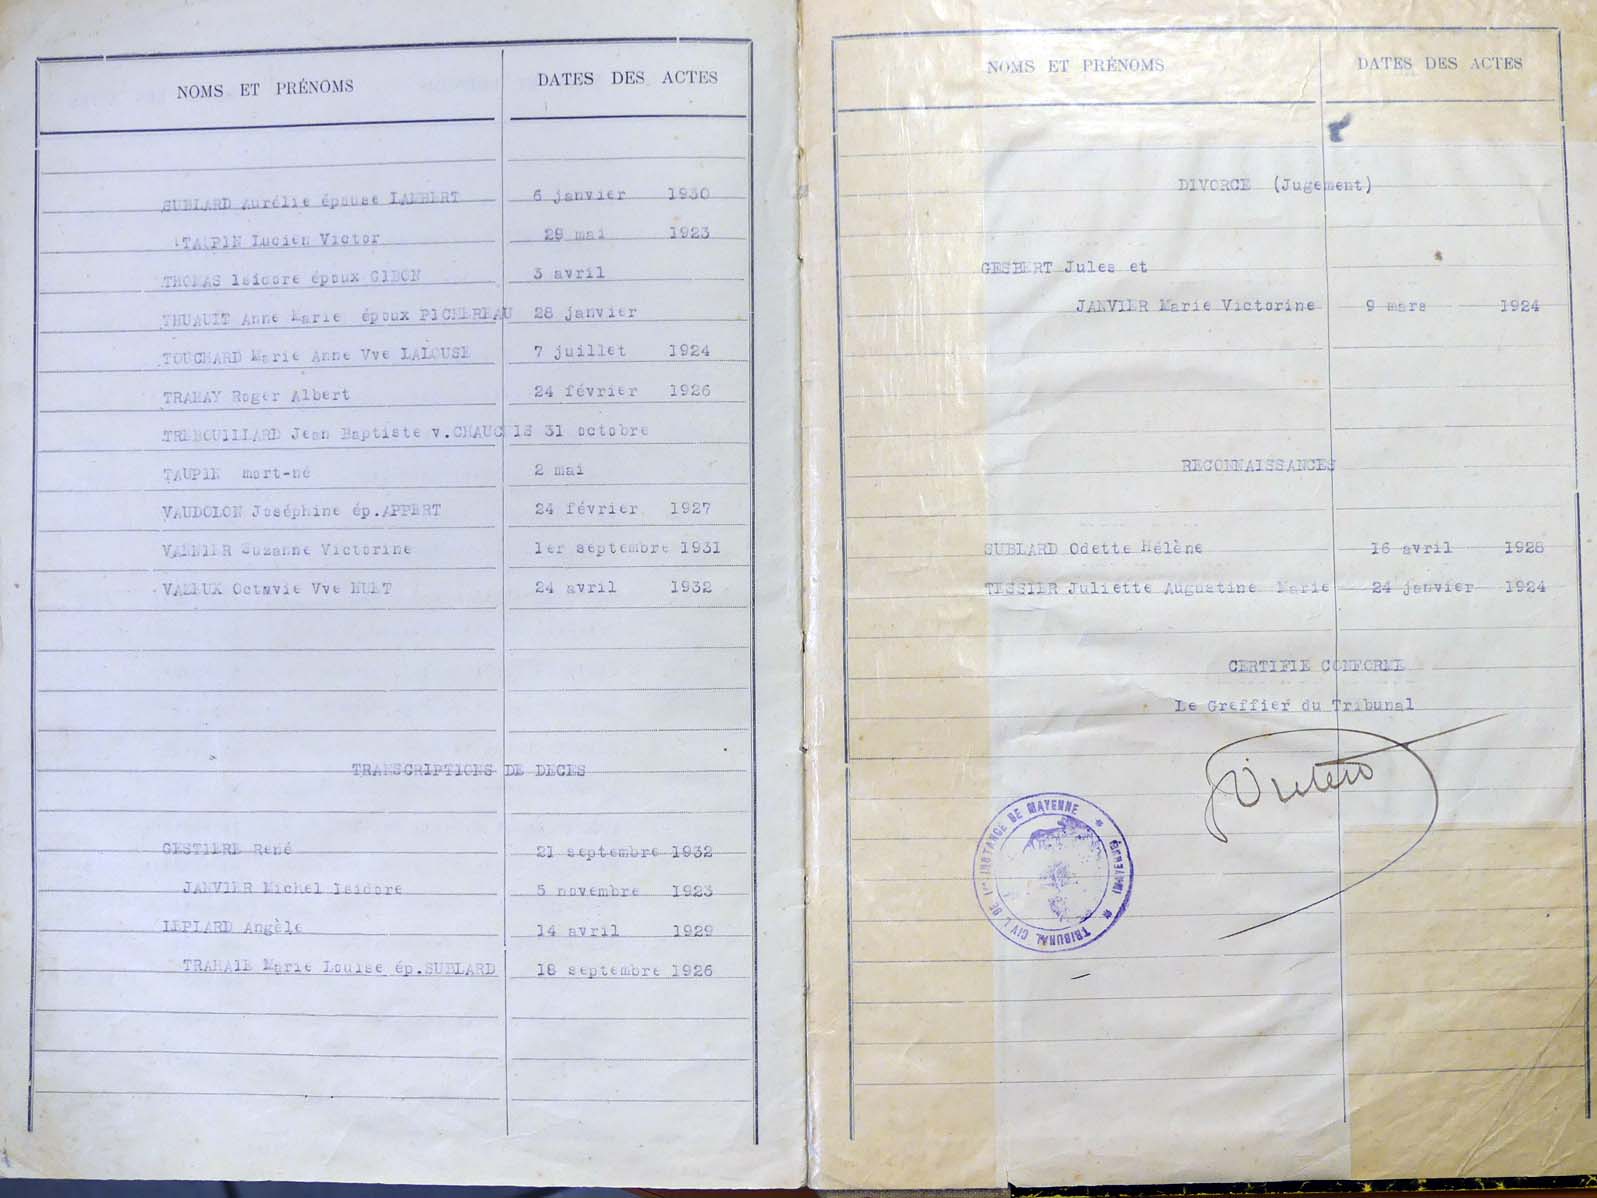 NOMS ET PRÉNOMS DATES DES ACTES
SUBLARD Aurélie épouse LAMBERT 6 janvier 1930
TAUPIN Lucien Victor 29 mai 1923
THOMAS Isidore époux GIBON 3 avril
THUAUIT Anne Marie époux PICHEREAU 28 janvier
TOUCHARD Marie Anne Vve LALOUSE 7 juillet 1924
TRAHAY Roger Albert 24 février 1926
TREBOUILLARD Jean Baptiste v.CHAUCHIS 31 octobre
TAUPIN mort-né 2 mai
VAUDOLON Joséphine ép.APPERT 24 février 1927
VANNIER Suzanne Victorine 1er septembre 1931
Octavie Vve HUET 24 avril 1932
TRANSCRIPTIONS DE DECES
GESTIERE René 21 septembre 1932
JANVIER Michel Isidore 5 novembre 1923
LEPLARD Angèle 14 avril 1929
TRAHAIE Marie Louise ép.SUBLARD 18 septembre 1926
NOMS ET PRÉNOMS DATES DES ACTES
DIVORCE (Jugement)
GESBERT Jules et
JANVIER Marie Victorine 9 mars 1924
RECONNAISSANCES
SUBLARD Odette Hélène 16 avril 1928
TESSIER Juliette Augustine Marie 24 janvier 1924
CERTIFIE CONFORME
Le Greffier du Tribunal
TRIBUNAL CIVIL DE 1ère INSTANCE DE MAYENNE * (MAYENNE) *